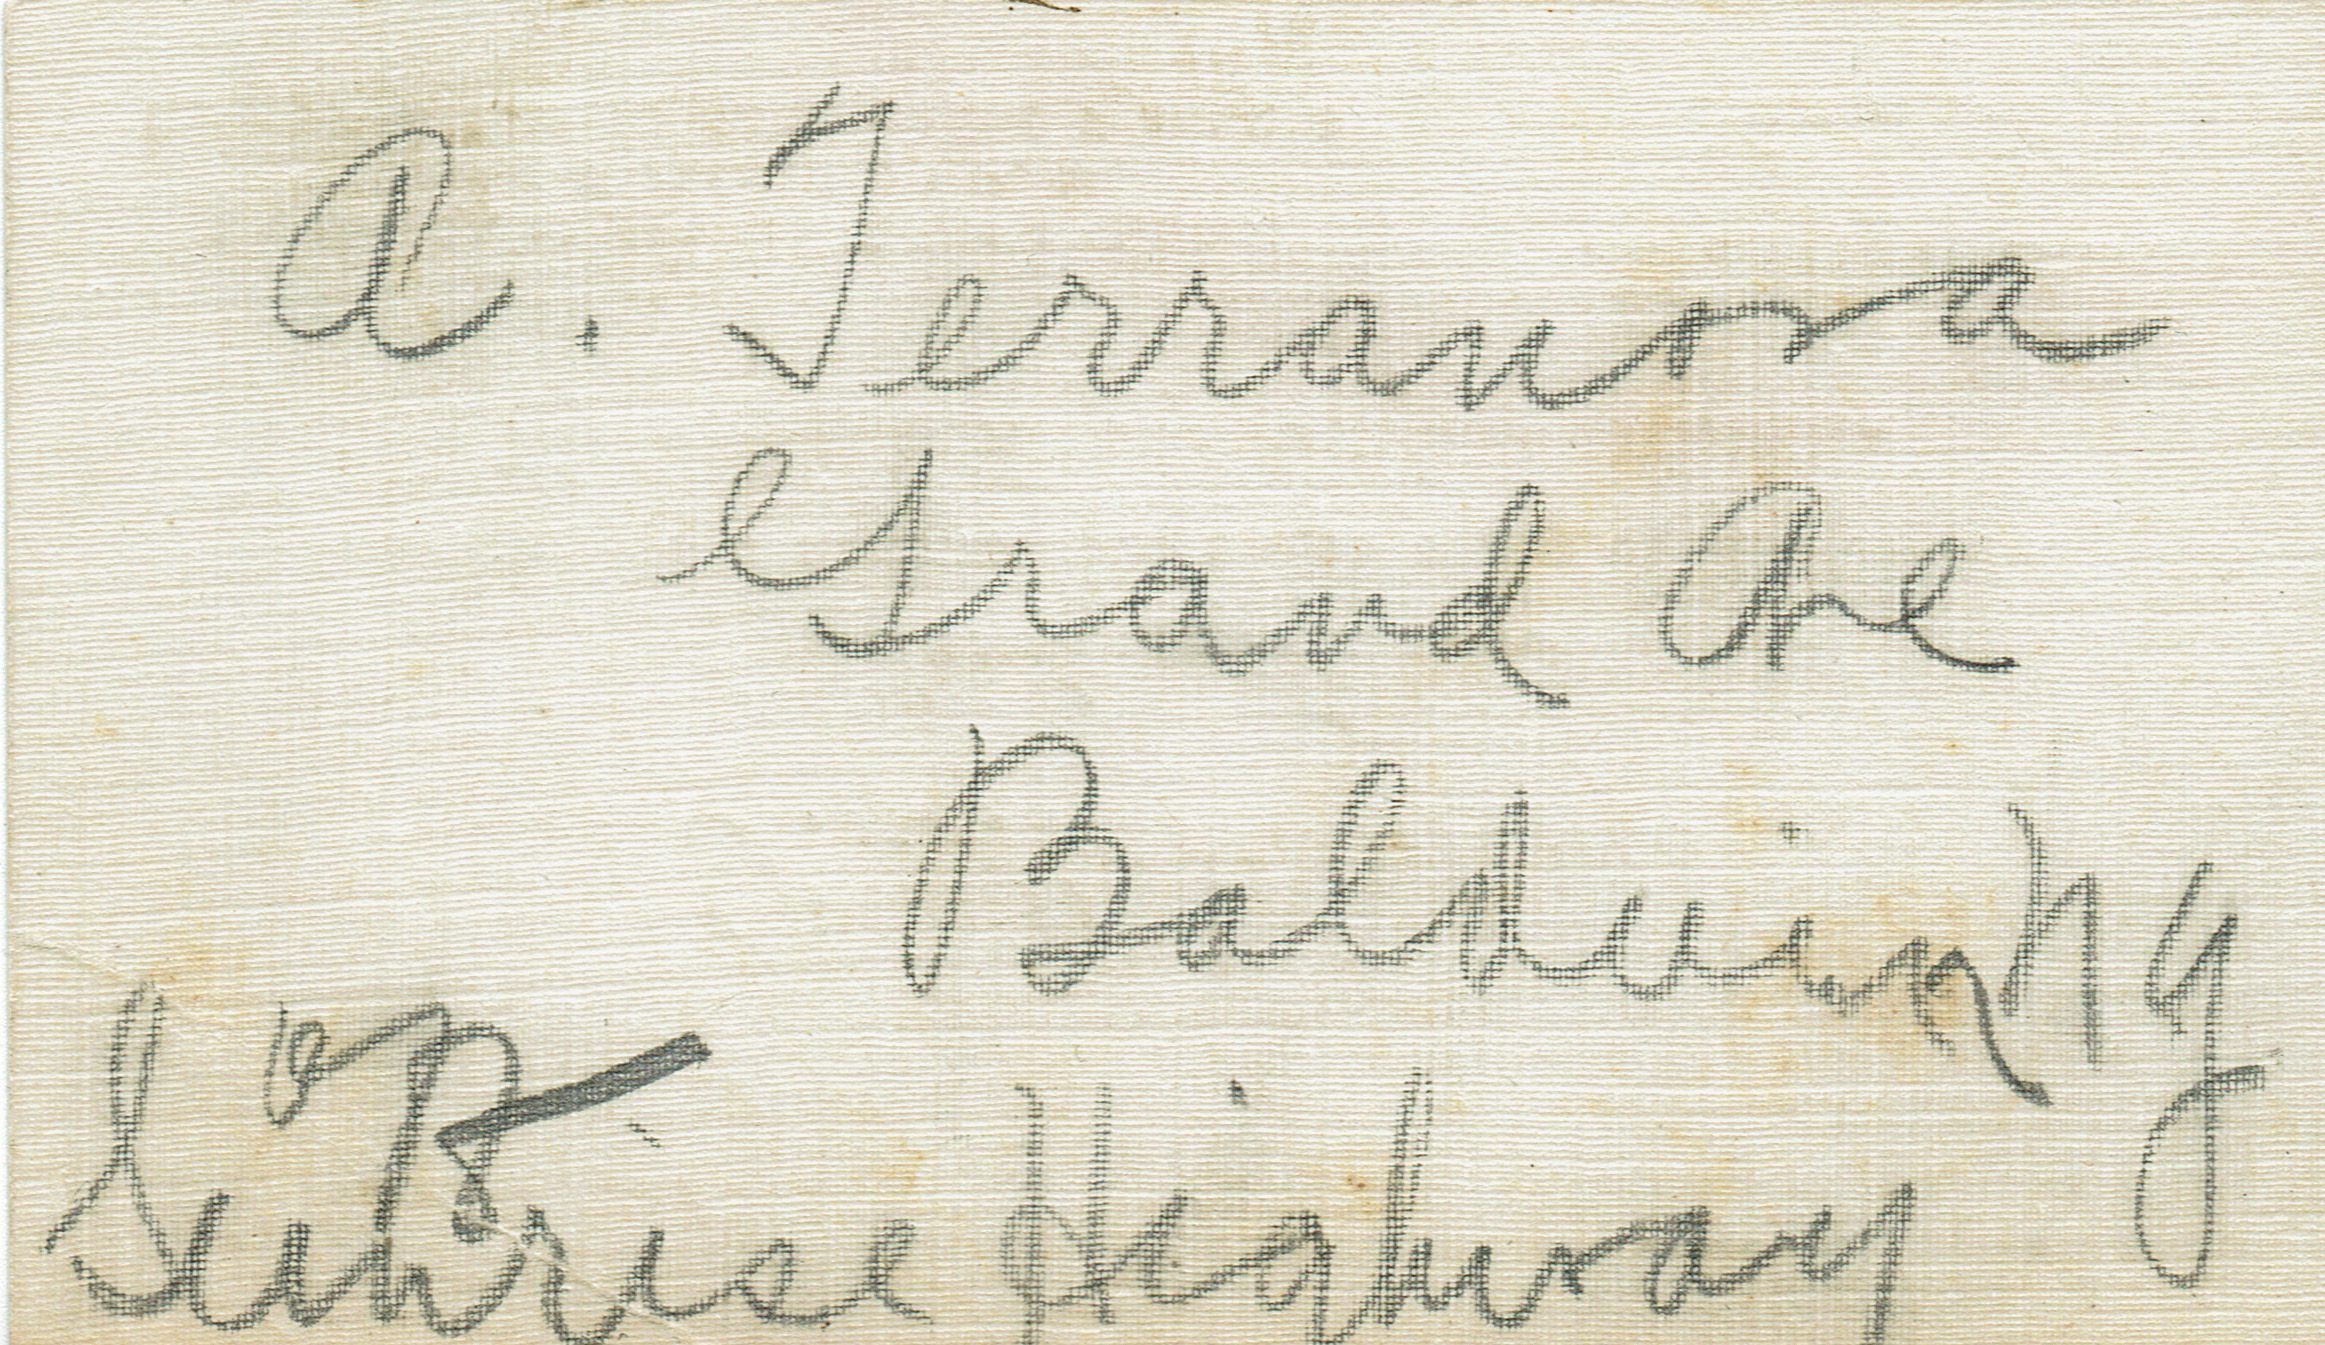 A. Terranova
Grand Ave
Baldwin NY
Sunrise Highway